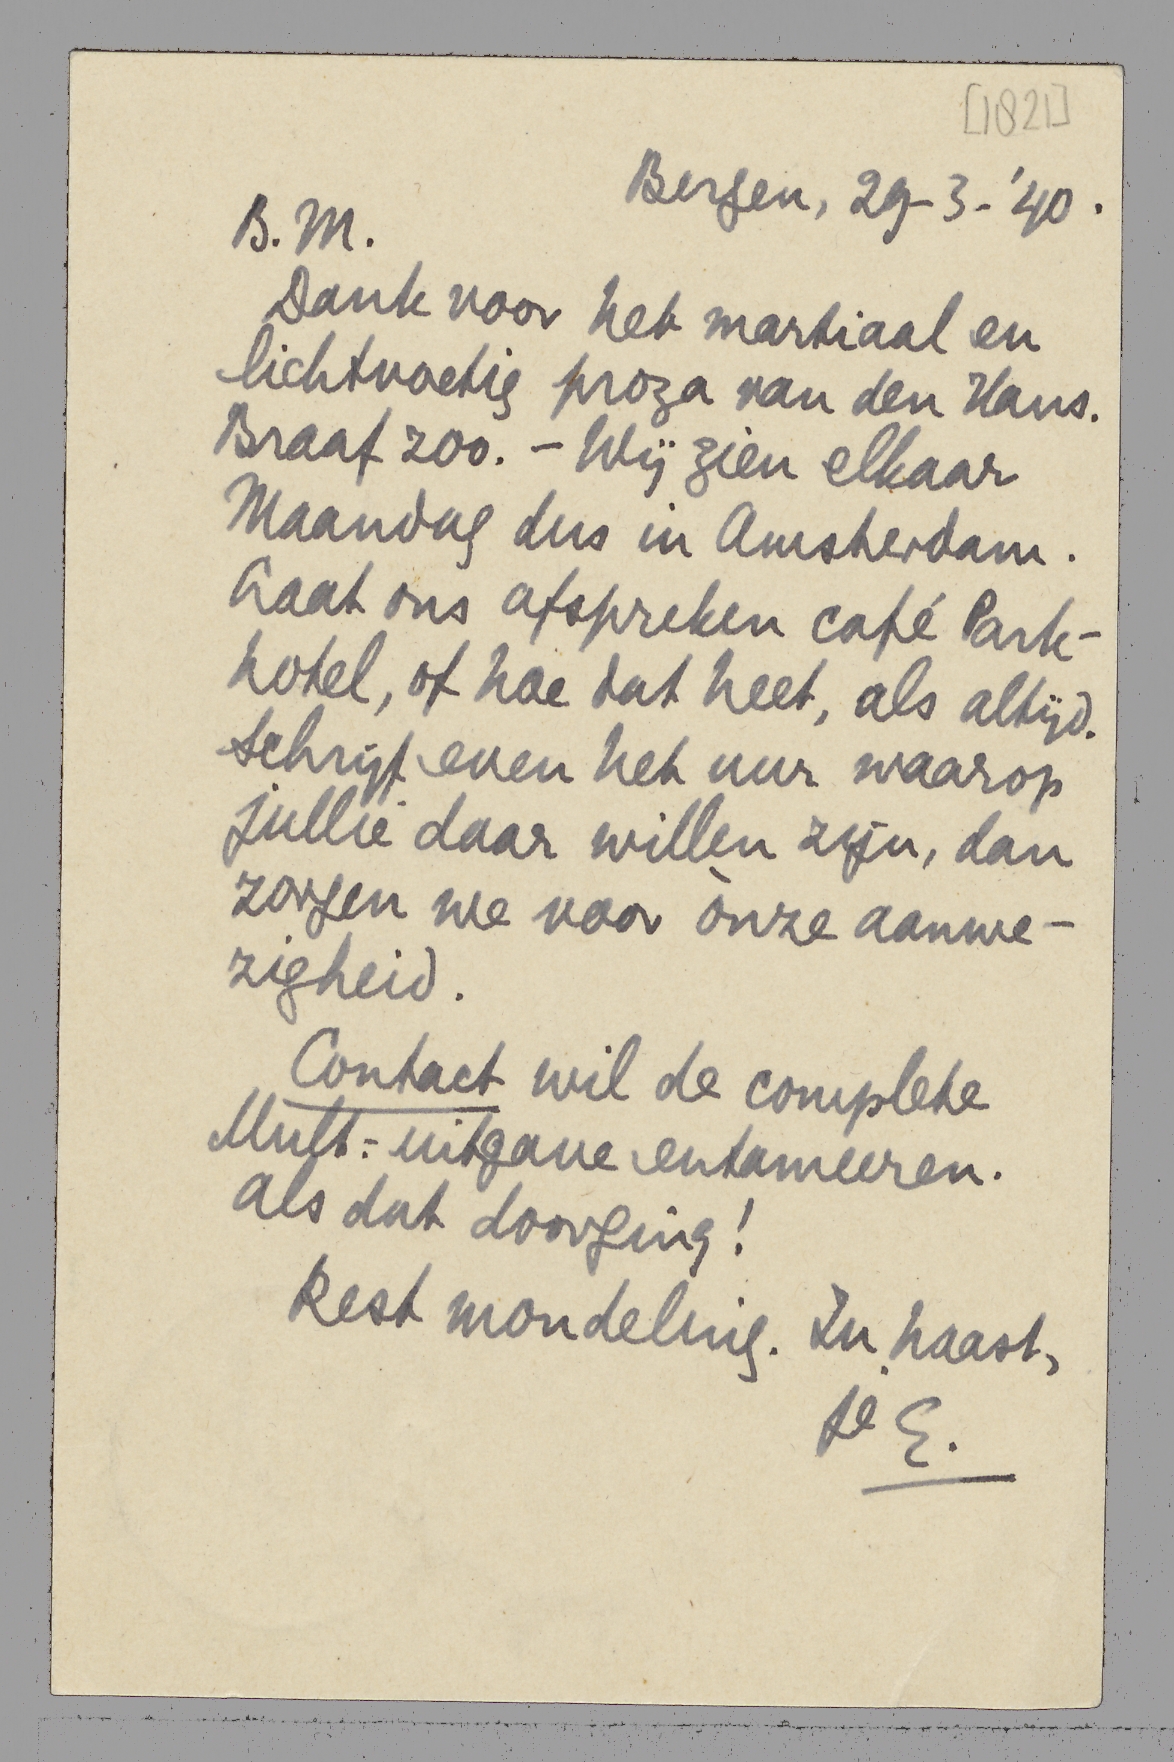 [1821]
Bergen, 29-3-'40.
B.M.
Dank voor het martiaal en
lichtvoetig proza van den Hans.
Braaf zoo. – Wij zien elkaar
Maandag dus in Amsterdam.
Laat ons afspreken café Park-
hotel, of hoe dat heet, als altijd.
Schrijf even het uur waarop
jullie daar willen zijn, dan
zorgen we voor ònze aanwe-
zigheid.
Contact wil de complete
Mult.-uitgave entameeren.
Als dat doorging!
Rest mondeling. In haast,
je E.